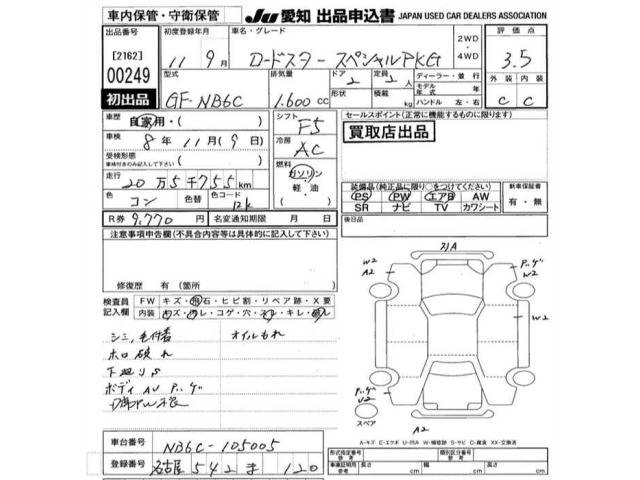 車内保管・守衛保管
JU 愛知 出品申込書 JAPAN USED CAR DEALERS ASSOCIATION
出品番号 初度登録年月 車名・グレード 2WD・4WD 評価点
[2162] 11 9月 ロードスター スペシャルPKG 3.5
00249 型式 排気量 ドア 定員 ディーラー・並行 外装 内装
GF-NB6C 1.600cc 2 2人 形状 積載 kg モデル年式 年 ハンドル 左・右 C C
初出品
車歴 自家用・( ) シフト F5 セールスポイント(正常に機能するものに限ります。)
車検 8年11月(9日) 冷房 AC 買取店出品
受検形態 車検付きのみ記入して下さい ( ) 燃料
走行 20万5千755km ガソリン・軽油 ( )
装備品(純正品に限り○をつけてください) 新車保証書
色 コン 色替 色コード 12K PS PW エアB AW 有・無
SR ナビ TV カワシート
R券 9,770円 名変通知期限 月 日 後日品
注意事項申告欄(不具合内容等は具体的に記入して下さい)
修復歴 有 (箇所
検査員記入欄 FW キズ・飛石・ヒビ割・リペア跡・X要
内装 キズ・汚レ・コゲ・穴・スレ・キレ・破レ
シミ、毛付着 オイルもれ
ホロ破れ
下廻りS
ボディ AU
スペア
W2
A2
W2
A2
A-キズ E-エクボ U-凹み W-補修跡 S-サビ C-腐食 XX-交換済
車台番号 NB6C-105005
登録番号 名古屋 542 ま 120
形式指定番号 参考 類別区分番号 参考
車庫証明用 参考 長さ cm 幅 cm 高さ cm